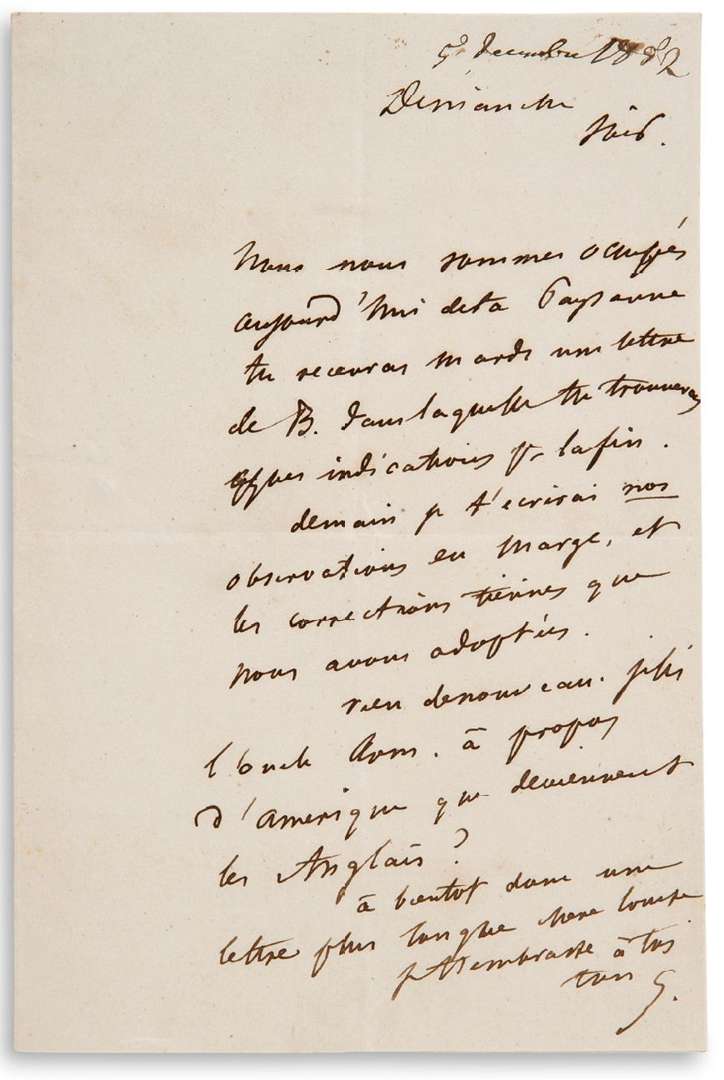 5 decembre 1852
Dimanche
soir.
nous nous sommes occupés
aujourd'hui de ta Paysanne
tu recevras mardi une lettre
de B. dans laquelle tu trouveras
qques indications pr la fin.
demain je t'ecrirai nos
observations en marge, et
les corrections tiennes que
nous avons adoptées.
rien de nouveau. je lis
l'oncle Tom. à propos
d'amerique que deviennent
les Anglais ?
à bientot donc une
lettre plus longue chere louise
je t'embrasse à toi
ton G.